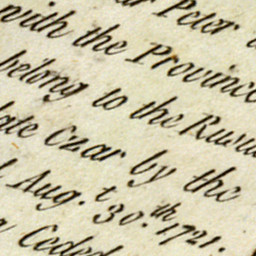 Peter
with the Province
belong to the Russi
late Czar by the
Aug. t 30.th 1721.
Ceded